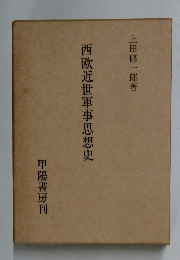 上田修一郎著
西欧近世軍事思想史
甲陽書房刊